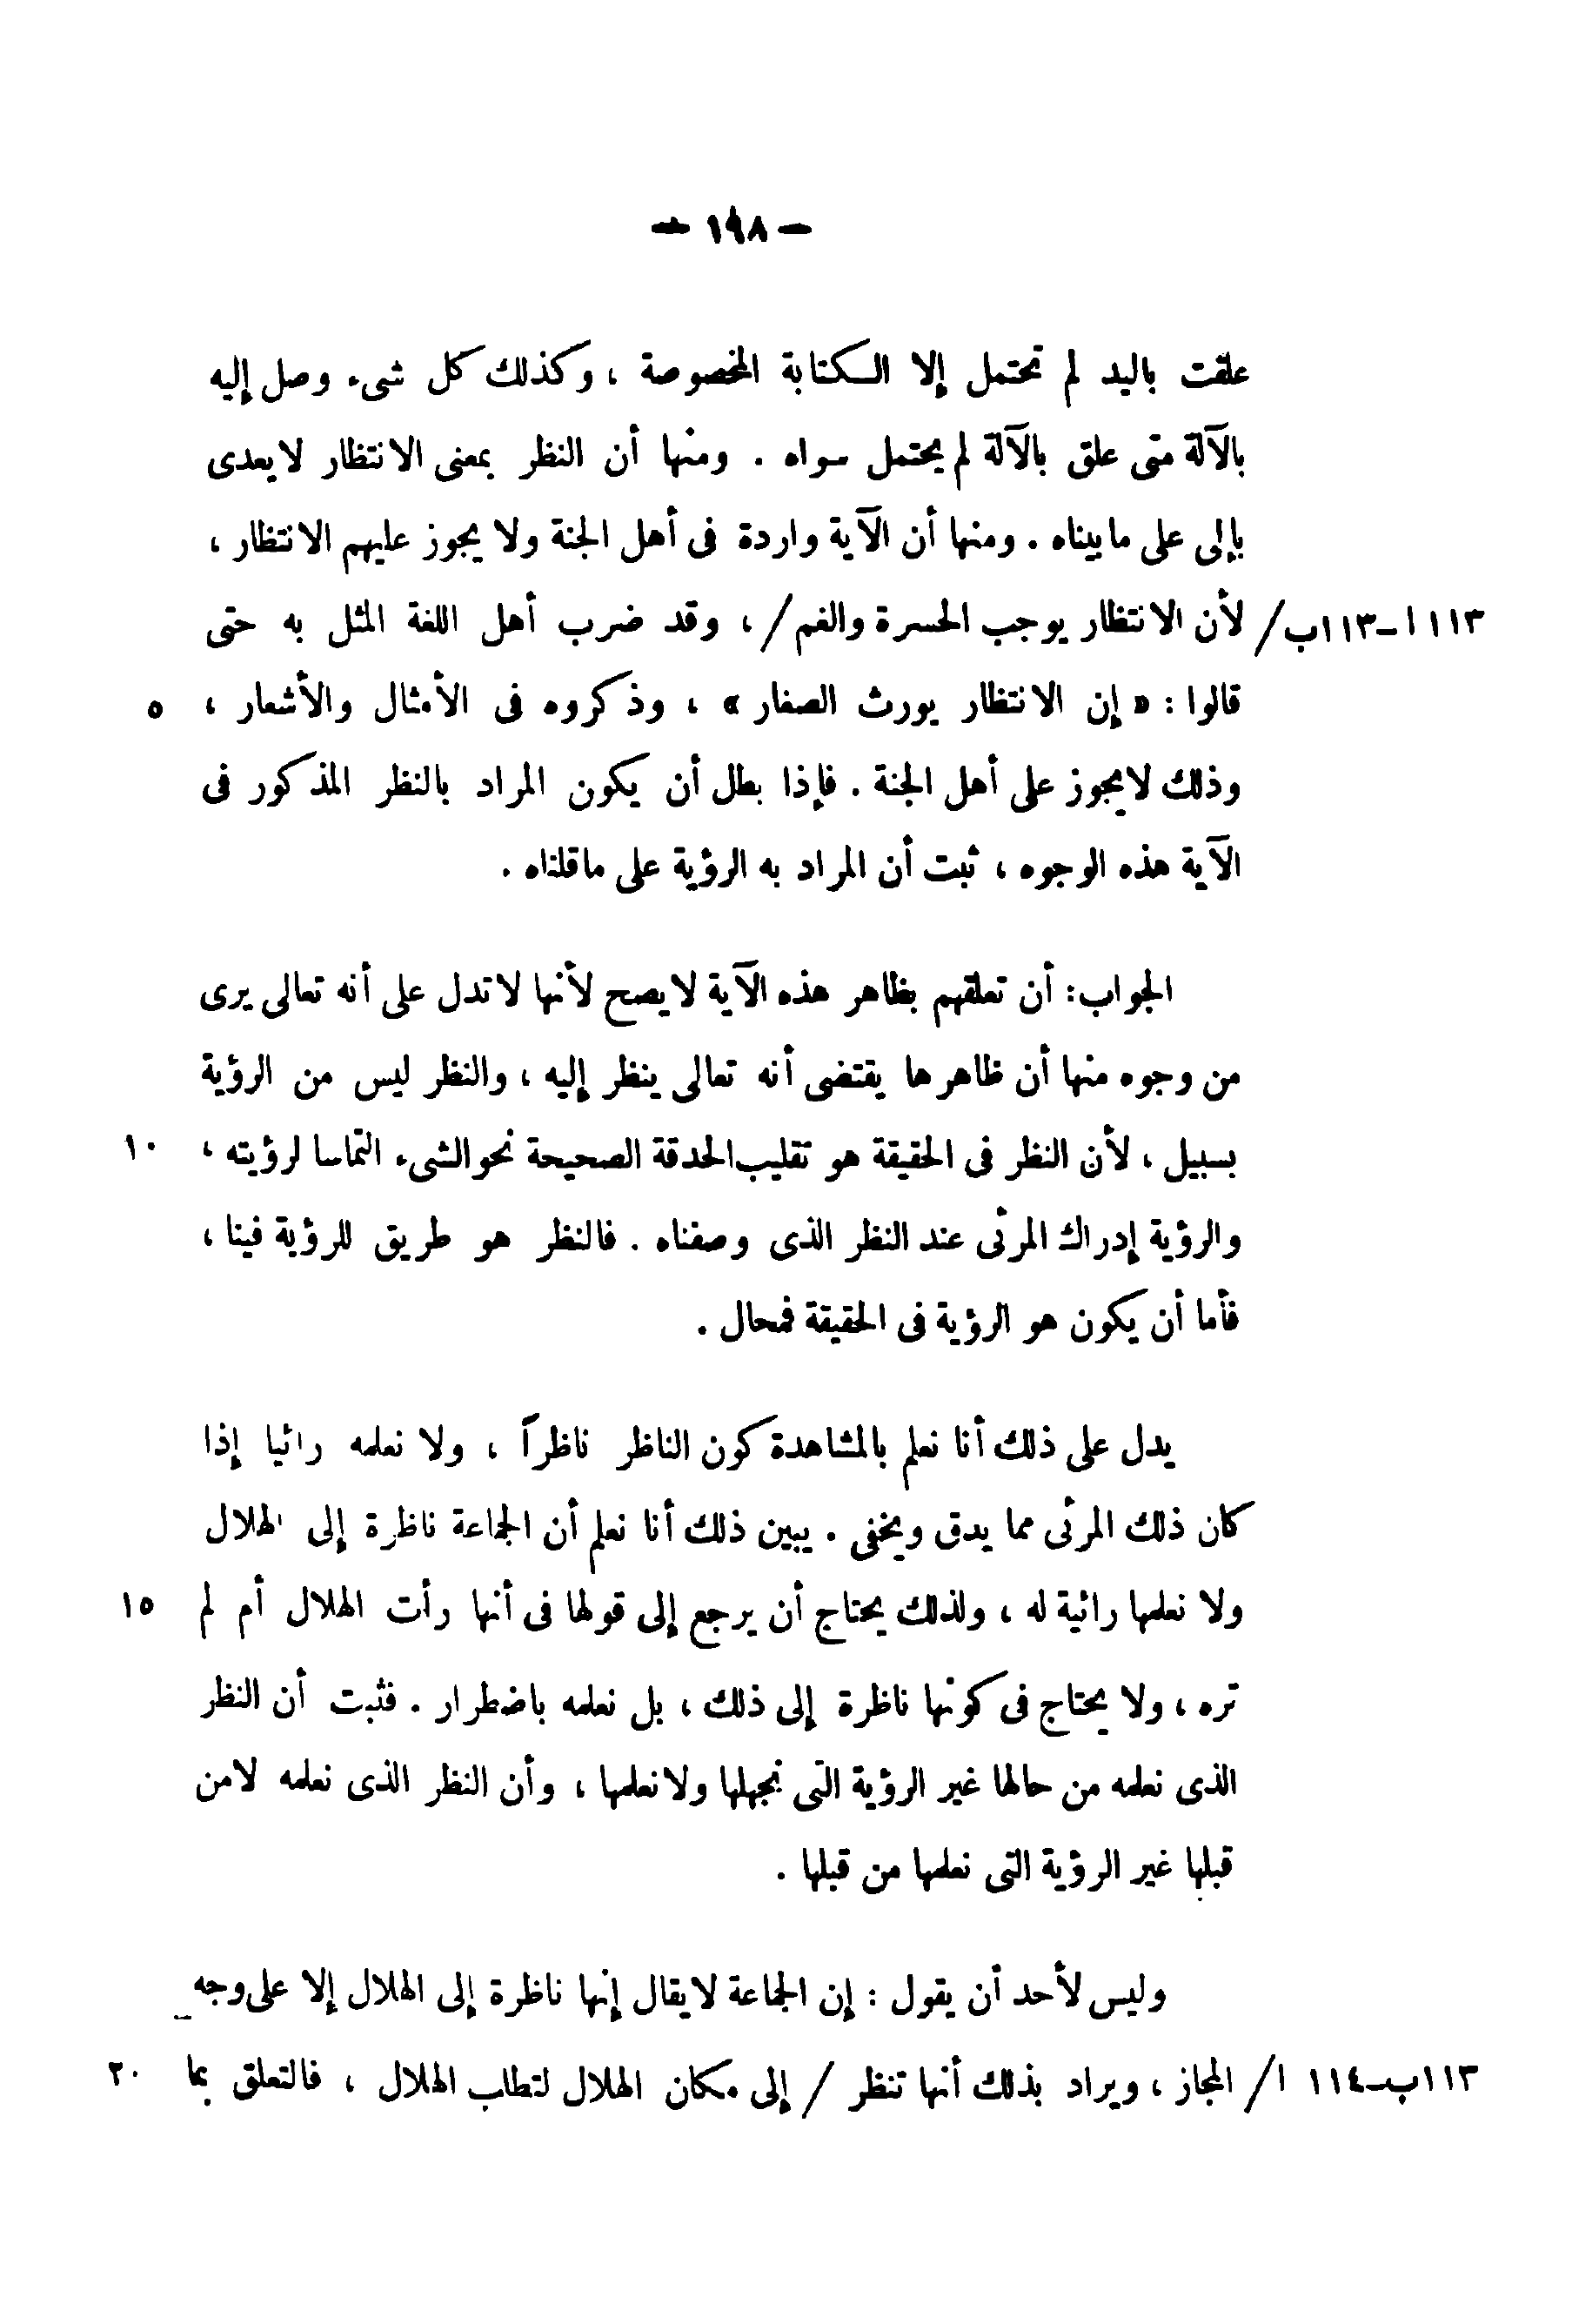 — ١٩٨ —
علقت باليد لم تحتمل إلا الكتابة المخصوصة ، وكذلك كل شىء وصل إليه
بالآلة متى علق بالآلة لم يحتمل سواه . ومنها أن النظر بمعنى الانتظار لا يعدى
بإلى على ما بيناه . ومنها أن الآية واردة فى أهل الجنة ولا يجوز عليهم الانتظار ،
١١٣ ا ـ ١١٣ب/ لأن الانتظار يوجب الحسرة والغم/ ، وقد ضرب أهل اللغة المثل به حتى
قالوا : « إن الانتظار يورث الصغار » ، وذكروه فى الأمثال والأشعار ، ٥
وذلك لا يجوز على أهل الجنة . فإذا بطل أن يكون المراد بالنظر المذكور فى
الآية هذه الوجوه ، ثبت أن المراد به الرؤية على ما قلناه .
الجواب : أن تعلقهم بظاهر هذه الآية لا يصح لأنها لا تدل على أنه تعالى يرى
من وجوه منها أن ظاهرها يقتضى أنه تعالى ينظر إليه ، والنظر ليس من الرؤية
بسبيل ، لأن النظر فى الحقيقة هو تقليب الحدقة الصحيحة نحو الشىء التماسا لرؤيته ، ١٠
والرؤية إدراك المرئى عند النظر الذى وصفناه . فالنظر هو طريق للرؤية فينا ،
فأما أن يكون هو الرؤية فى الحقيقة فمحال .
يدل على ذلك أنا نعلم بالمشاهدة كون الناظر ناظراً ، ولا نعلمه رائيا إذا
كان ذلك المرئى مما يدق ويخفى . يبين ذلك أنا نعلم أن الجماعة ناظرة إلى الهلال
ولا نعلمها رائية له ، ولذلك يحتاج أن يرجع إلى قولها فى أنها رأت الهلال أم لم ١٥
تره ، ولا يحتاج فى كونها ناظرة إلى ذلك ، بل نعلمه باضطرار . فثبت أن النظر
الذى نعلمه من حالها غير الرؤية التى نجهلها ولا نعلمها ، وأن النظر الذى نعلمه لا من
قبلها غير الرؤية التى نعلمها من قبلها .
وليس لأحد أن يقول : إن الجماعة لا يقال إنها ناظرة إلى الهلال إلا على وجه
١١٣ب ـ ١١٤ ا/ المجاز ، ويراد بذلك أنها تنظر / إلى مكان الهلال لتطلب الهلال ، فالتعلق بما ٢٠